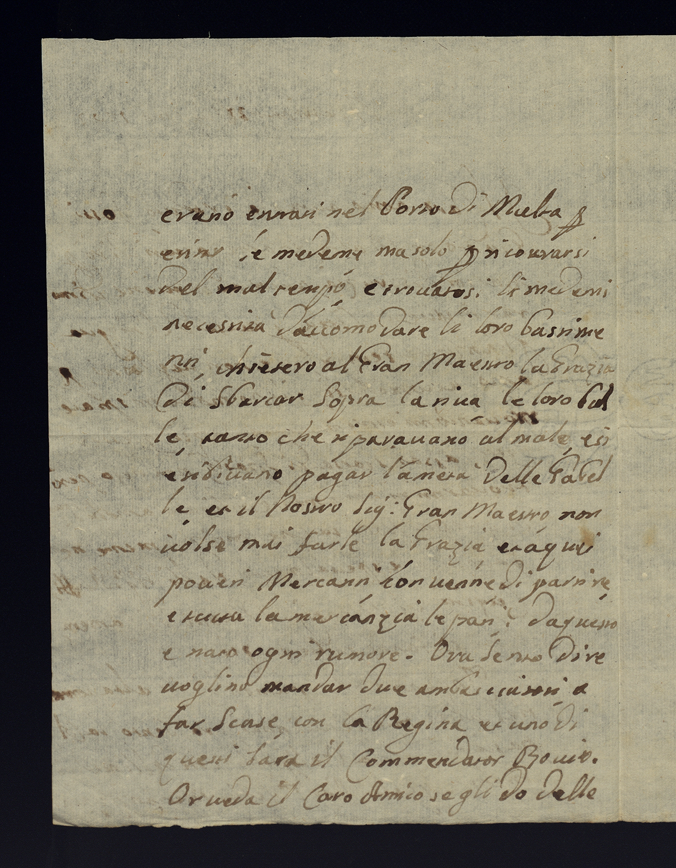 erano entrati nel Porto di Malta
mede me ma solo ricovrarsi
del mal tempo, e trovatosi li medemi
necesnità d'accomodare li loro bastime
nti, chiesero al Gran Maestro la Grazia
di sbarcar sopra la riva le loro bal
le, tanto che riparavano al male, esi
esibivano pagar la metà delle Gabel
le et il Nostro Sig: Gran Maestro non
volse mai farle la Grazia et à quei
poveri Mercanti convenne di partire
e tutta la mercanzia le patì: da questo
e nato ogni rumore. Ora sento dire
voglino mandar due ambasciatori a
far scuse con la Regina et uno di
questi sarà il Commendator
Or veda il Caro Amico se gli do delle